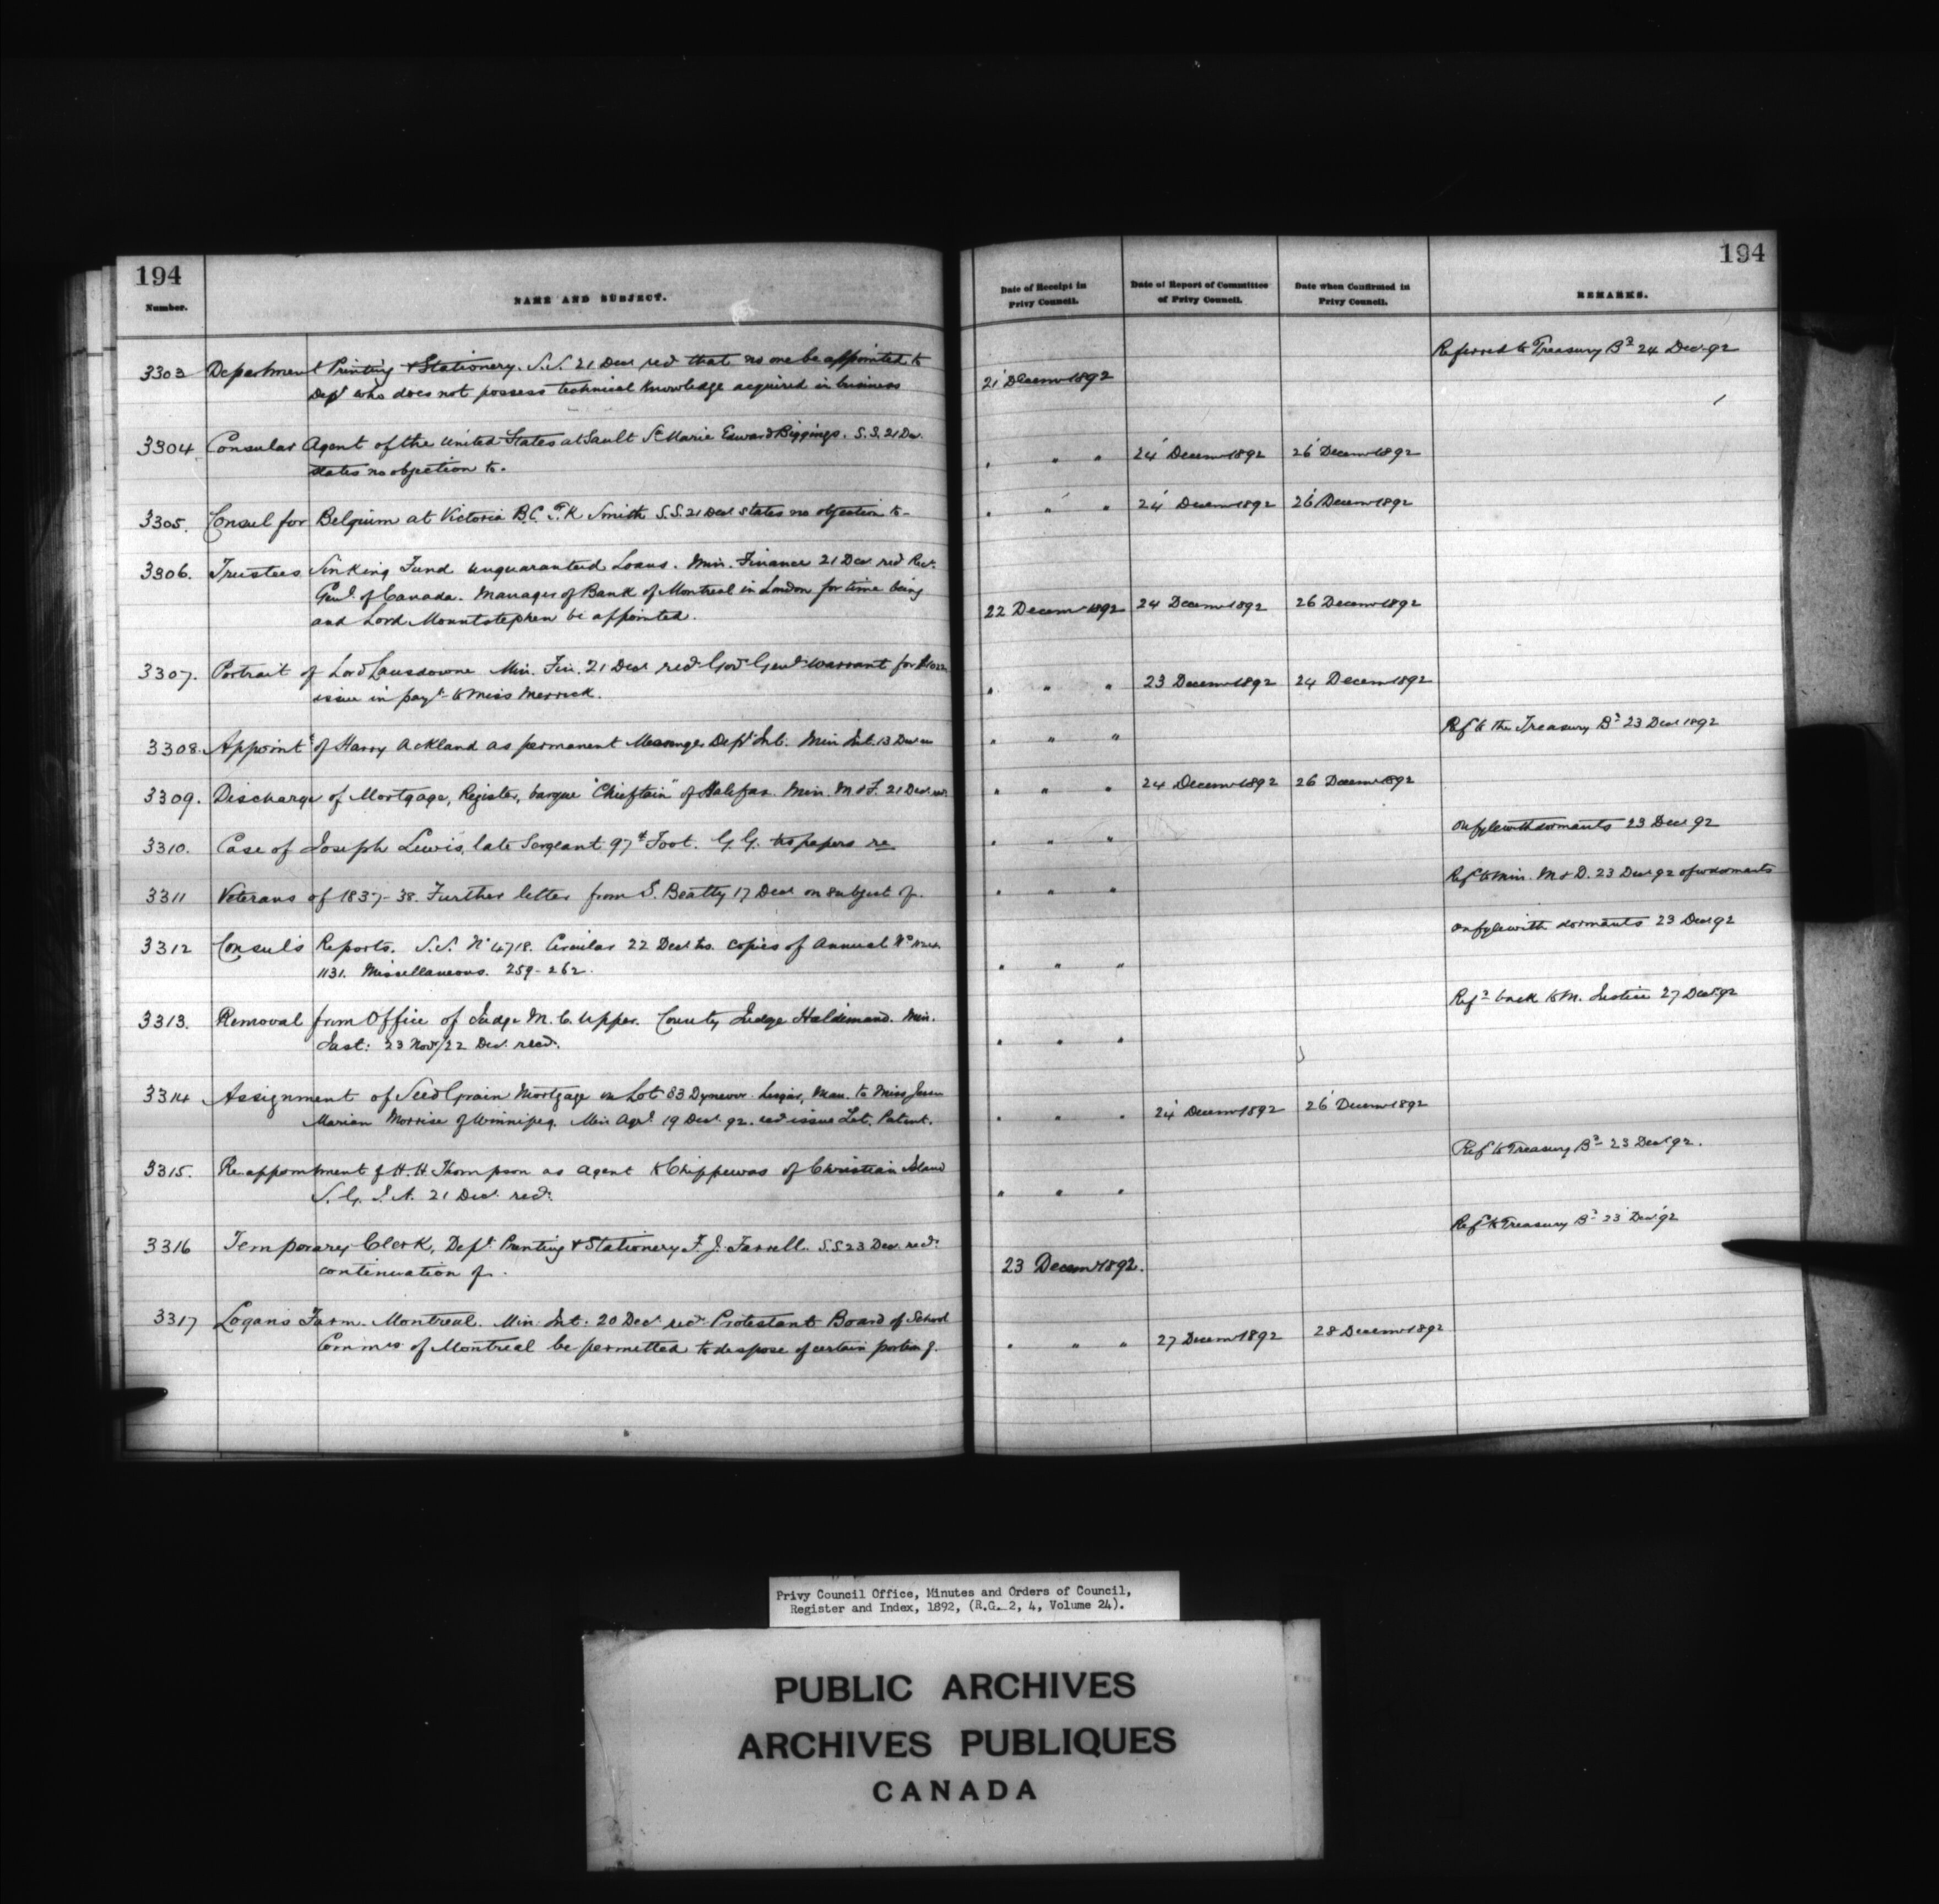 194
194
Number.
NAME AND SUBJECT.
Date of Receipt in
Privy Council.
Date of Report of Committee
of Privy Council.
Date when Confirmed in
Privy Council.
REMARKS.
3303 Department Printing & Stationery. S.S. 21 Decr recd that no one be appointed to
Dept who does not possess technical knowledge acquired in business
21 Decemr 1892
Referred to Treasury Bd 24 Decr 92
3304 Consular Agent of the United States at Sault Ste Marie Edward Biggings. S.S. 21 Dec.
states no objection to.
" " " 24 Decemr 1892 26 Decemr 1892
3305. Consul for Belgium at Victoria B.C. T.R. Smith S.S. 21 Decr states no objection to -
" " " 24 Decemr 1892 26 Decemr 1892
3306. Trustees Sinking Fund unguaranteed Loans. Min. Finance 21 Decr recd Recr.
Genl. of Canada. Manager of Bank of Montreal in London for time being
and Lord Mountstephen be appointed.
22 Decemr 1892 24 Decemr 1892 26 Decemr 1892
3307. Portrait of Lord Lansdowne Min. Fin. 21 Decr recd Govr Genls warrant for
issue in payt to Miss Merrick.
" " " 23 Decemr 1892 24 Decemr 1892
3308. Appointt of Harry Ackland as permanent Messenger Dept Int. Min Int. 13 Decr
" " " Refd to the Treasury Bd 23 Decr 1892
3309. Discharge of Mortgage, Register, barque "Chieftain" of Halifax. Min. M & F. 21 Decr
" " " 24 Decemr 1892 26 Decemr 1892
3310. Case of Joseph Lewis, late Sergeant 97th Foot. G.G. trs papers re
" " " on fyle with dormants 23 Decr 92
3311 Veterans of 1837-38. Further letter from S. Beatty 17 Decr on subject of.
" " " Refd to Min. M & D. 23 Decr 92 of w dormants
3312 Consuls Reports. S.S. No 4718. Circular 22 Decr trs. copies of Annual Nos
1131. Miscellaneous. 259-262.
" " " on fyle with dormants 23 Decr 92
3313. Removal from Office of Judge M. C. Upper. County Judge Haldimand. Min.
Just: 23 Novr/22 Decr. recd.
" " " Refd back to M. Justice 27 Decr 92
3314 Assignment of Seed Grain Mortgage on Lot 83 Dynevor Lisgar, Man. to Miss
Marian Morrise of Winnipeg. Min Agrl 19 Decr. 92. recd issue Let. Patent.
" " " 24 Decemr 1892 26 Decemr 1892
3315. Re-appointment of H. H. Thompson as Agent to Chippewas of Christian Island
S. G. I. A. 21 Decr. recd.
" " " Refd to Treasury Bd 23 Decr 92.
3316 Temporary Clerk, Dept. Printing & Stationery F. J. Farrell. S.S 23 Dec. recd.
continuation of.
23 Decemr 1892.
Refd to Treasury Bd 23 Decr 92
3317 Logans Farm. Montreal. Min. Int. 20 Decr recd Protestant Board of School
Commrs of Montreal be permitted to dispose of certain portion of.
" " " 27 Decemr 1892 28 Decemr 1892
Privy Council Office, Minutes and Orders of Council,
Register and Index, 1892, (R.G. 2, 4, Volume 24).
PUBLIC ARCHIVES
ARCHIVES PUBLIQUES
CANADA